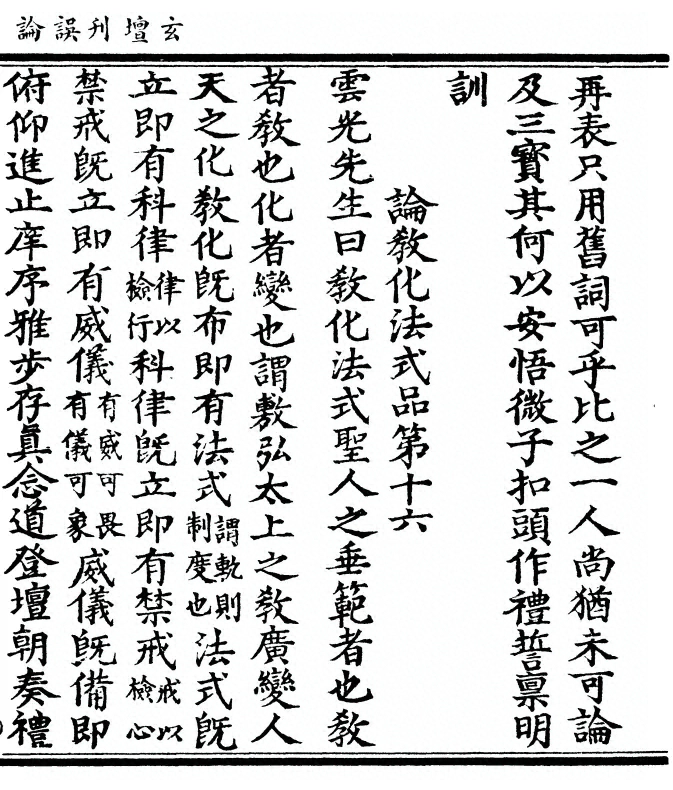 玄壇刊誤論
再表只用舊詞可乎比之一人尚猶未可論
及三寶其何以安悟微子扣頭作禮誓稟明
訓
論敎化法式品第十六
雲光先生曰敎化法式聖人之垂範者也敎
者敎也化者變也謂敷弘太上之敎廣變人
天之化敎化旣布即有法式謂軌則制度也法式旣
立即有科律律以檢行科律旣立即有禁戒戒以檢心
禁戒旣立即有威儀有威可畏有儀可象威儀旣備即
俯仰進止庠序雅步存眞念道登壇朝奏禮